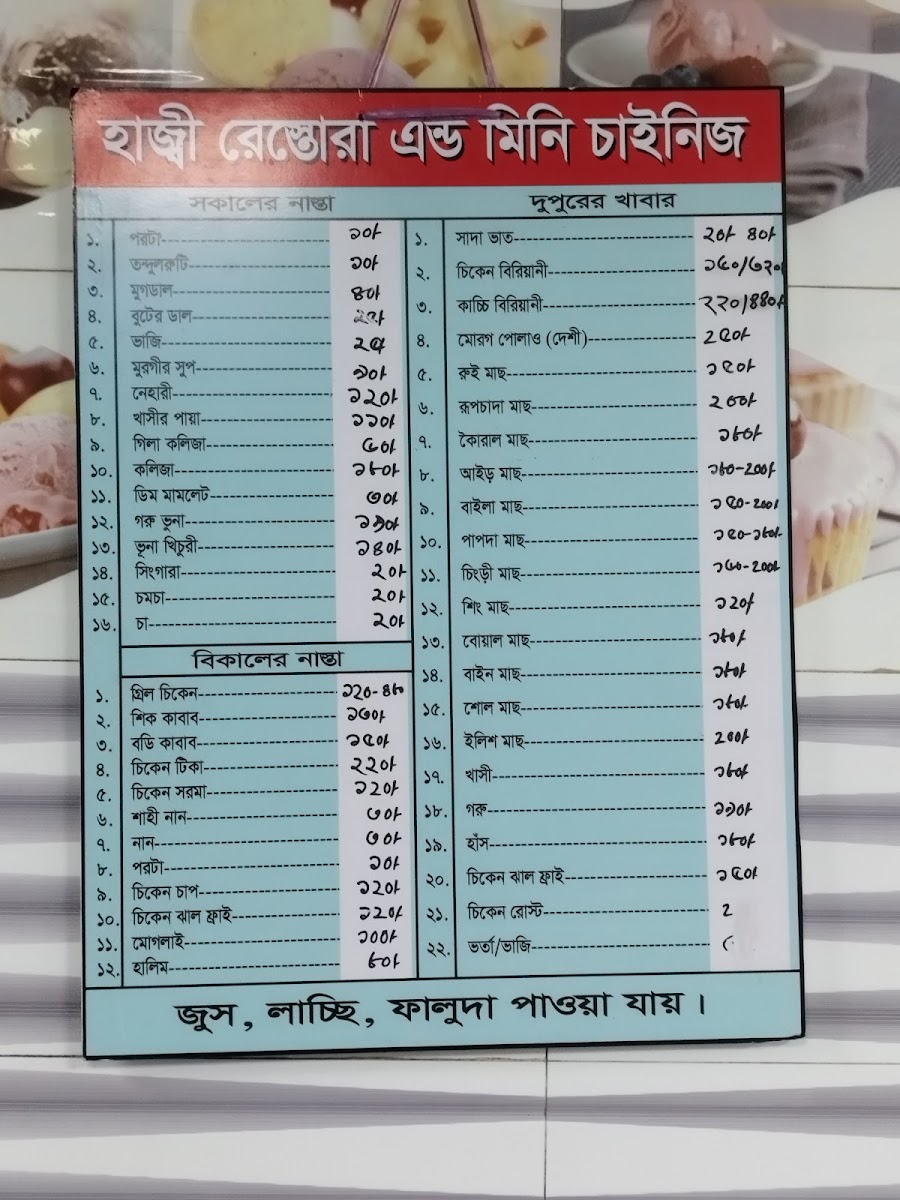 হাজ্বী রেস্তোরা এন্ড মিনি চাইনিজ
সকালের নাস্তা
১. পরটা ১০/-
২. তন্দুলরুটি ১০/-
৩. মুগডাল ৪০/-
৪. বুটের ডাল
৫. ভাজি
৬. মুরগীর সুপ ৯০/-
৭. নেহারী ১২০/-
৮. খাসীর পায়া ১১০/-
৯. গিলা কলিজা ৫০/-
১০. কলিজা ১৮০/-
১১. ডিম মামলেট ৩০/-
১২. গরু ভুনা ১৯০/-
১৩. ভূনা খিচুরী ১৪০/-
১৪. সিংগারা ২০/-
১৫. চমচা ২০/-
১৬. চা ২০/-
বিকালের নাস্তা
১. গ্রিল চিকেন ১২০-৪৮০
২. শিক কাবাব ১৩০/-
৩. বডি কাবাব ১৫০/-
৪. চিকেন টিকা ২২০/-
৫. চিকেন সরমা ১২০/-
৬. শাহী নান ৩০/-
৭. নান ৩০/-
৮. পরটা ১০/-
৯. চিকেন চাপ ১২০/-
১০. চিকেন ঝাল ফ্রাই ১২০/-
১১. মোগলাই ১০০/-
১২. হালিম ৮০/-
দুপুরের খাবার
১. সাদা ভাত ২০/- ৪০/-
২. চিকেন বিরিয়ানী ১৬০/৩২০/-
৩. কাচ্চি বিরিয়ানী ২২০/৪৪০/-
৪. মোরগ পোলাও (দেশী) ২৫০/-
৫. রুই মাছ ১৫০/-
৬. রূপচাদা মাছ ২০০/-
৭. কৈারাল মাছ ১৮০/-
৮. আইড় মাছ ১৮০-২০০/-
৯. বাইলা মাছ ১৫০-২০০/-
১০. পাপদা মাছ ১৫০-১৮০/-
১১. চিংড়ী মাছ ১৬০-২০০/-
১২. শিং মাছ ১২০/-
১৩. বোয়াল মাছ ১৮০/-
১৪. বাইন মাছ ১৮০/-
১৫. শোল মাছ ১৮০/-
১৬. ইলিশ মাছ ২০০/-
১৭. খাসী ১৮০/-
১৮. গরু ১৯০/-
১৯. হাঁস ১৮০/-
২০. চিকেন ঝাল ফ্রাই ১৫০/-
২১. চিকেন রোস্ট ২
২২. ভর্তা/ভাজি
জুস, লাচ্ছি, ফালুদা পাওয়া যায়।